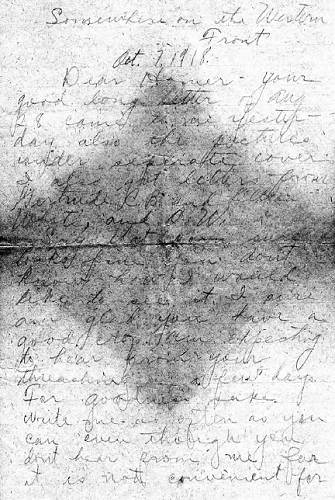 Somewhere on the Western
Front
Oct. 7, 1918.
Dear Homer - your
good long letter of Aug
28 came to me yester-
day also the pictures
under separate cover
I also got letters from
Gertrude,
and
looks fine
know how I would
like to see it. I sure
am glad you have a
good crop. Am expecting
to hear from your
threshing in a few days.
For goodness sake
write me as often as you
can even though you
dont hear from me for
it is not convenient for